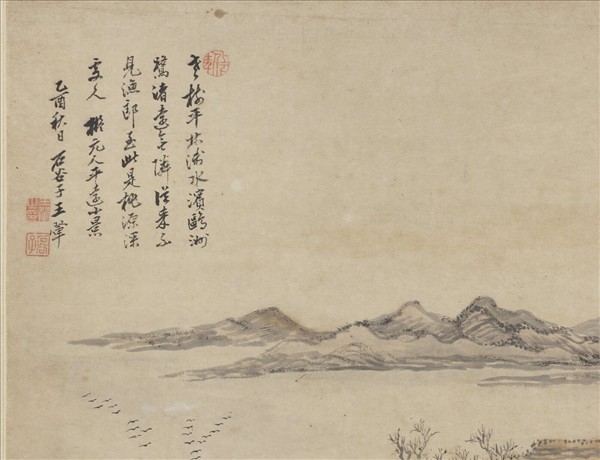 樹平林水濱鷗洲
鷺渚遠無隣從來不
見漁郎至此是桃源深
處人 擬元人平遠小景
乙酉秋日 石谷子王翬